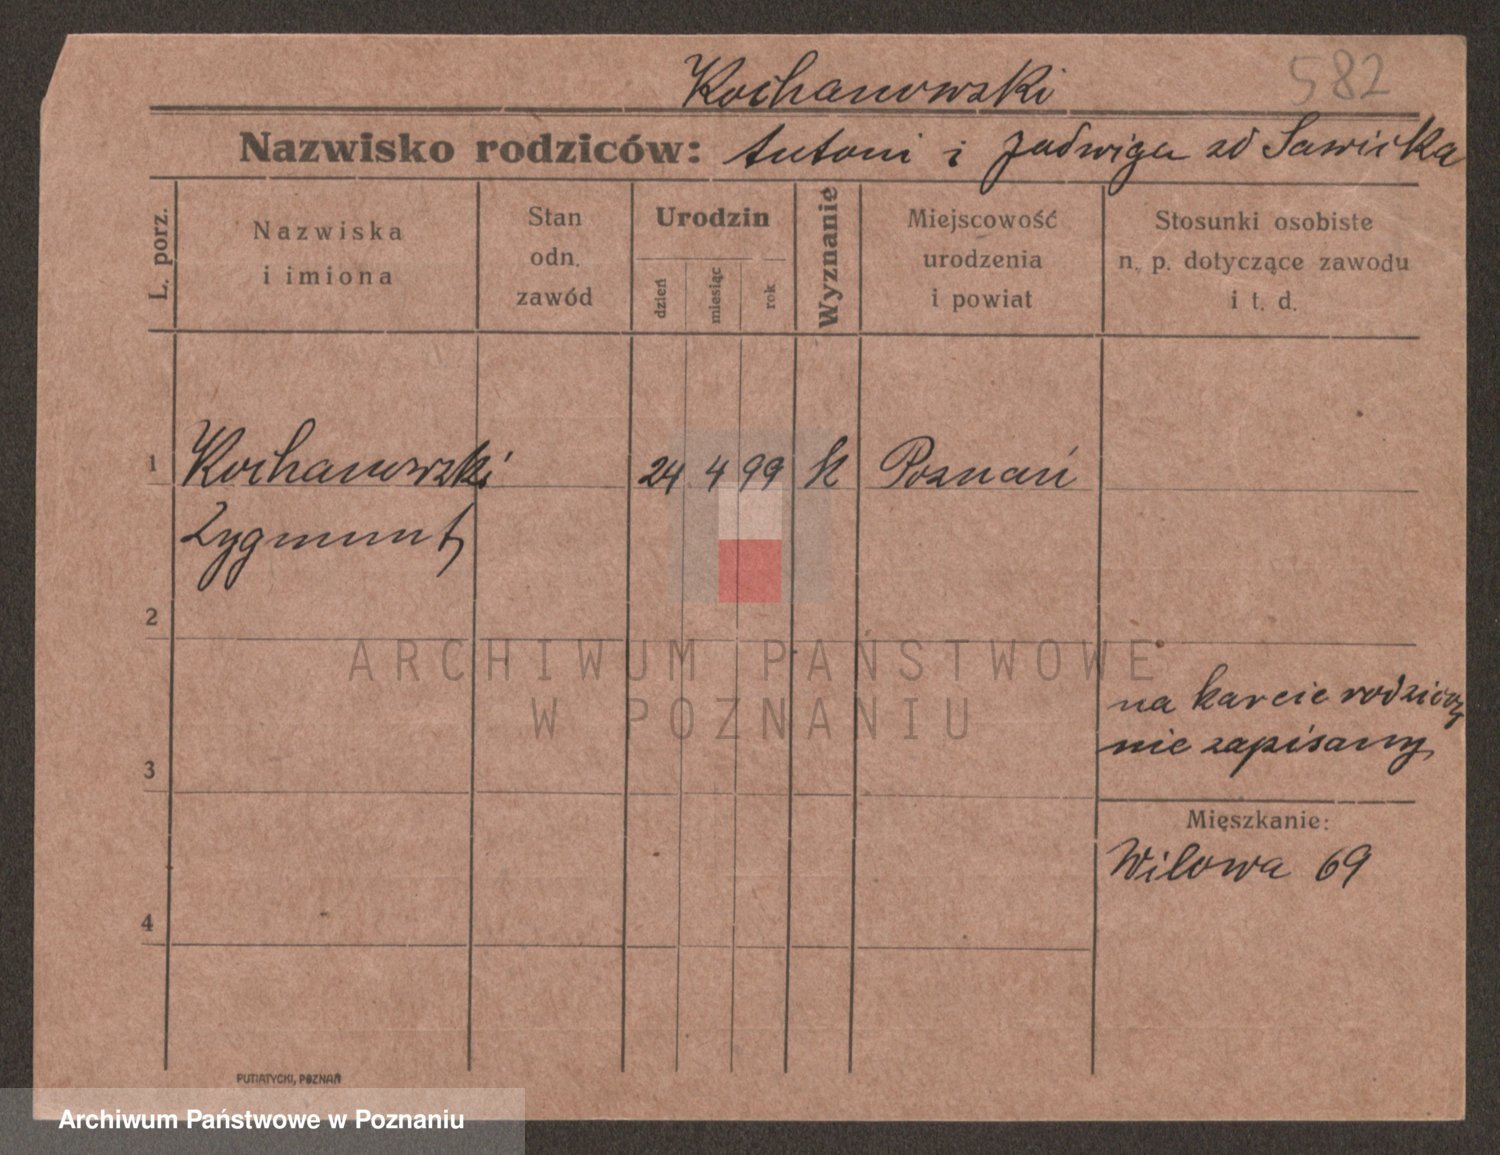 Kochanowski 582
Nazwisko rodziców: Antoni i Jadwiga zd Sawicka
L. porz.
Nazwiska
i imiona
Stan
odn.
zawód
Urodzin
dzień
miesiąc
rok
Wyznanie
Miejscowość
urodzenia
i powiat
Stosunki osobiste
n. p. dotyczące zawodu
i t. d.
1 Kochanowski 24 4 99 k Poznań
Zygmunt
2
ARCHIWUM PAŃSTWOWE
W POZNANIU
na karcie rodziców
nie zapisany
3
Mięszkanie:
Wilowa 69
4
PUTIATYCKI, POZNAŃ
Archiwum Państwowe w Poznaniu